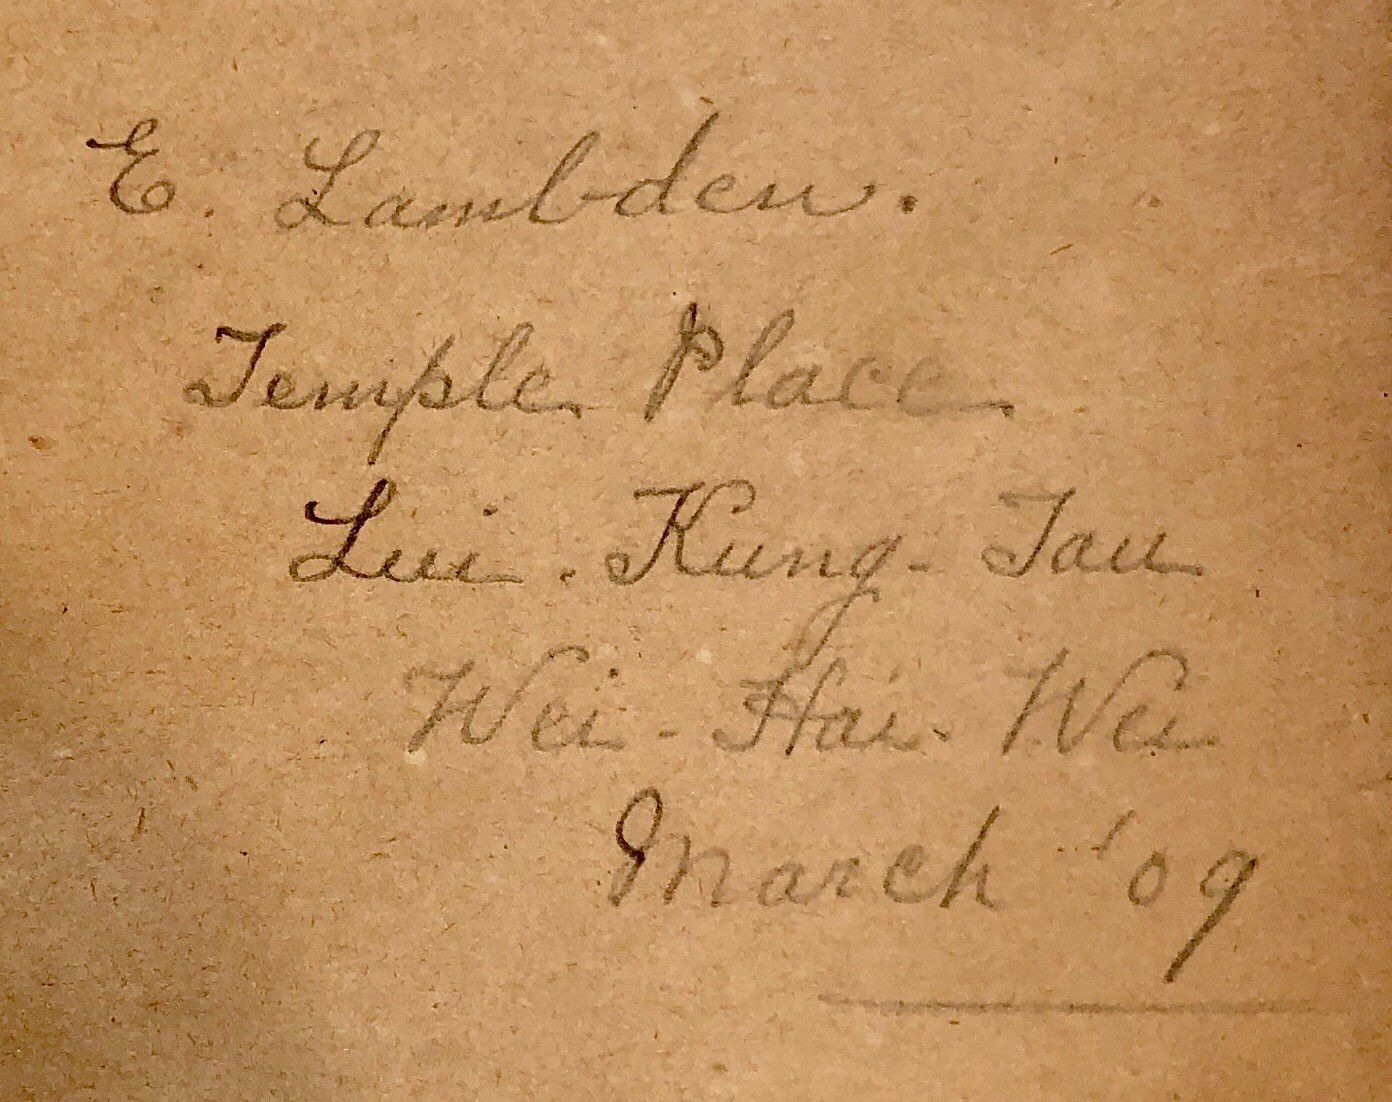 E. Lambden.
Temple Place
Lui. Kung- Tau
Wei- Hai- Wei
March '09